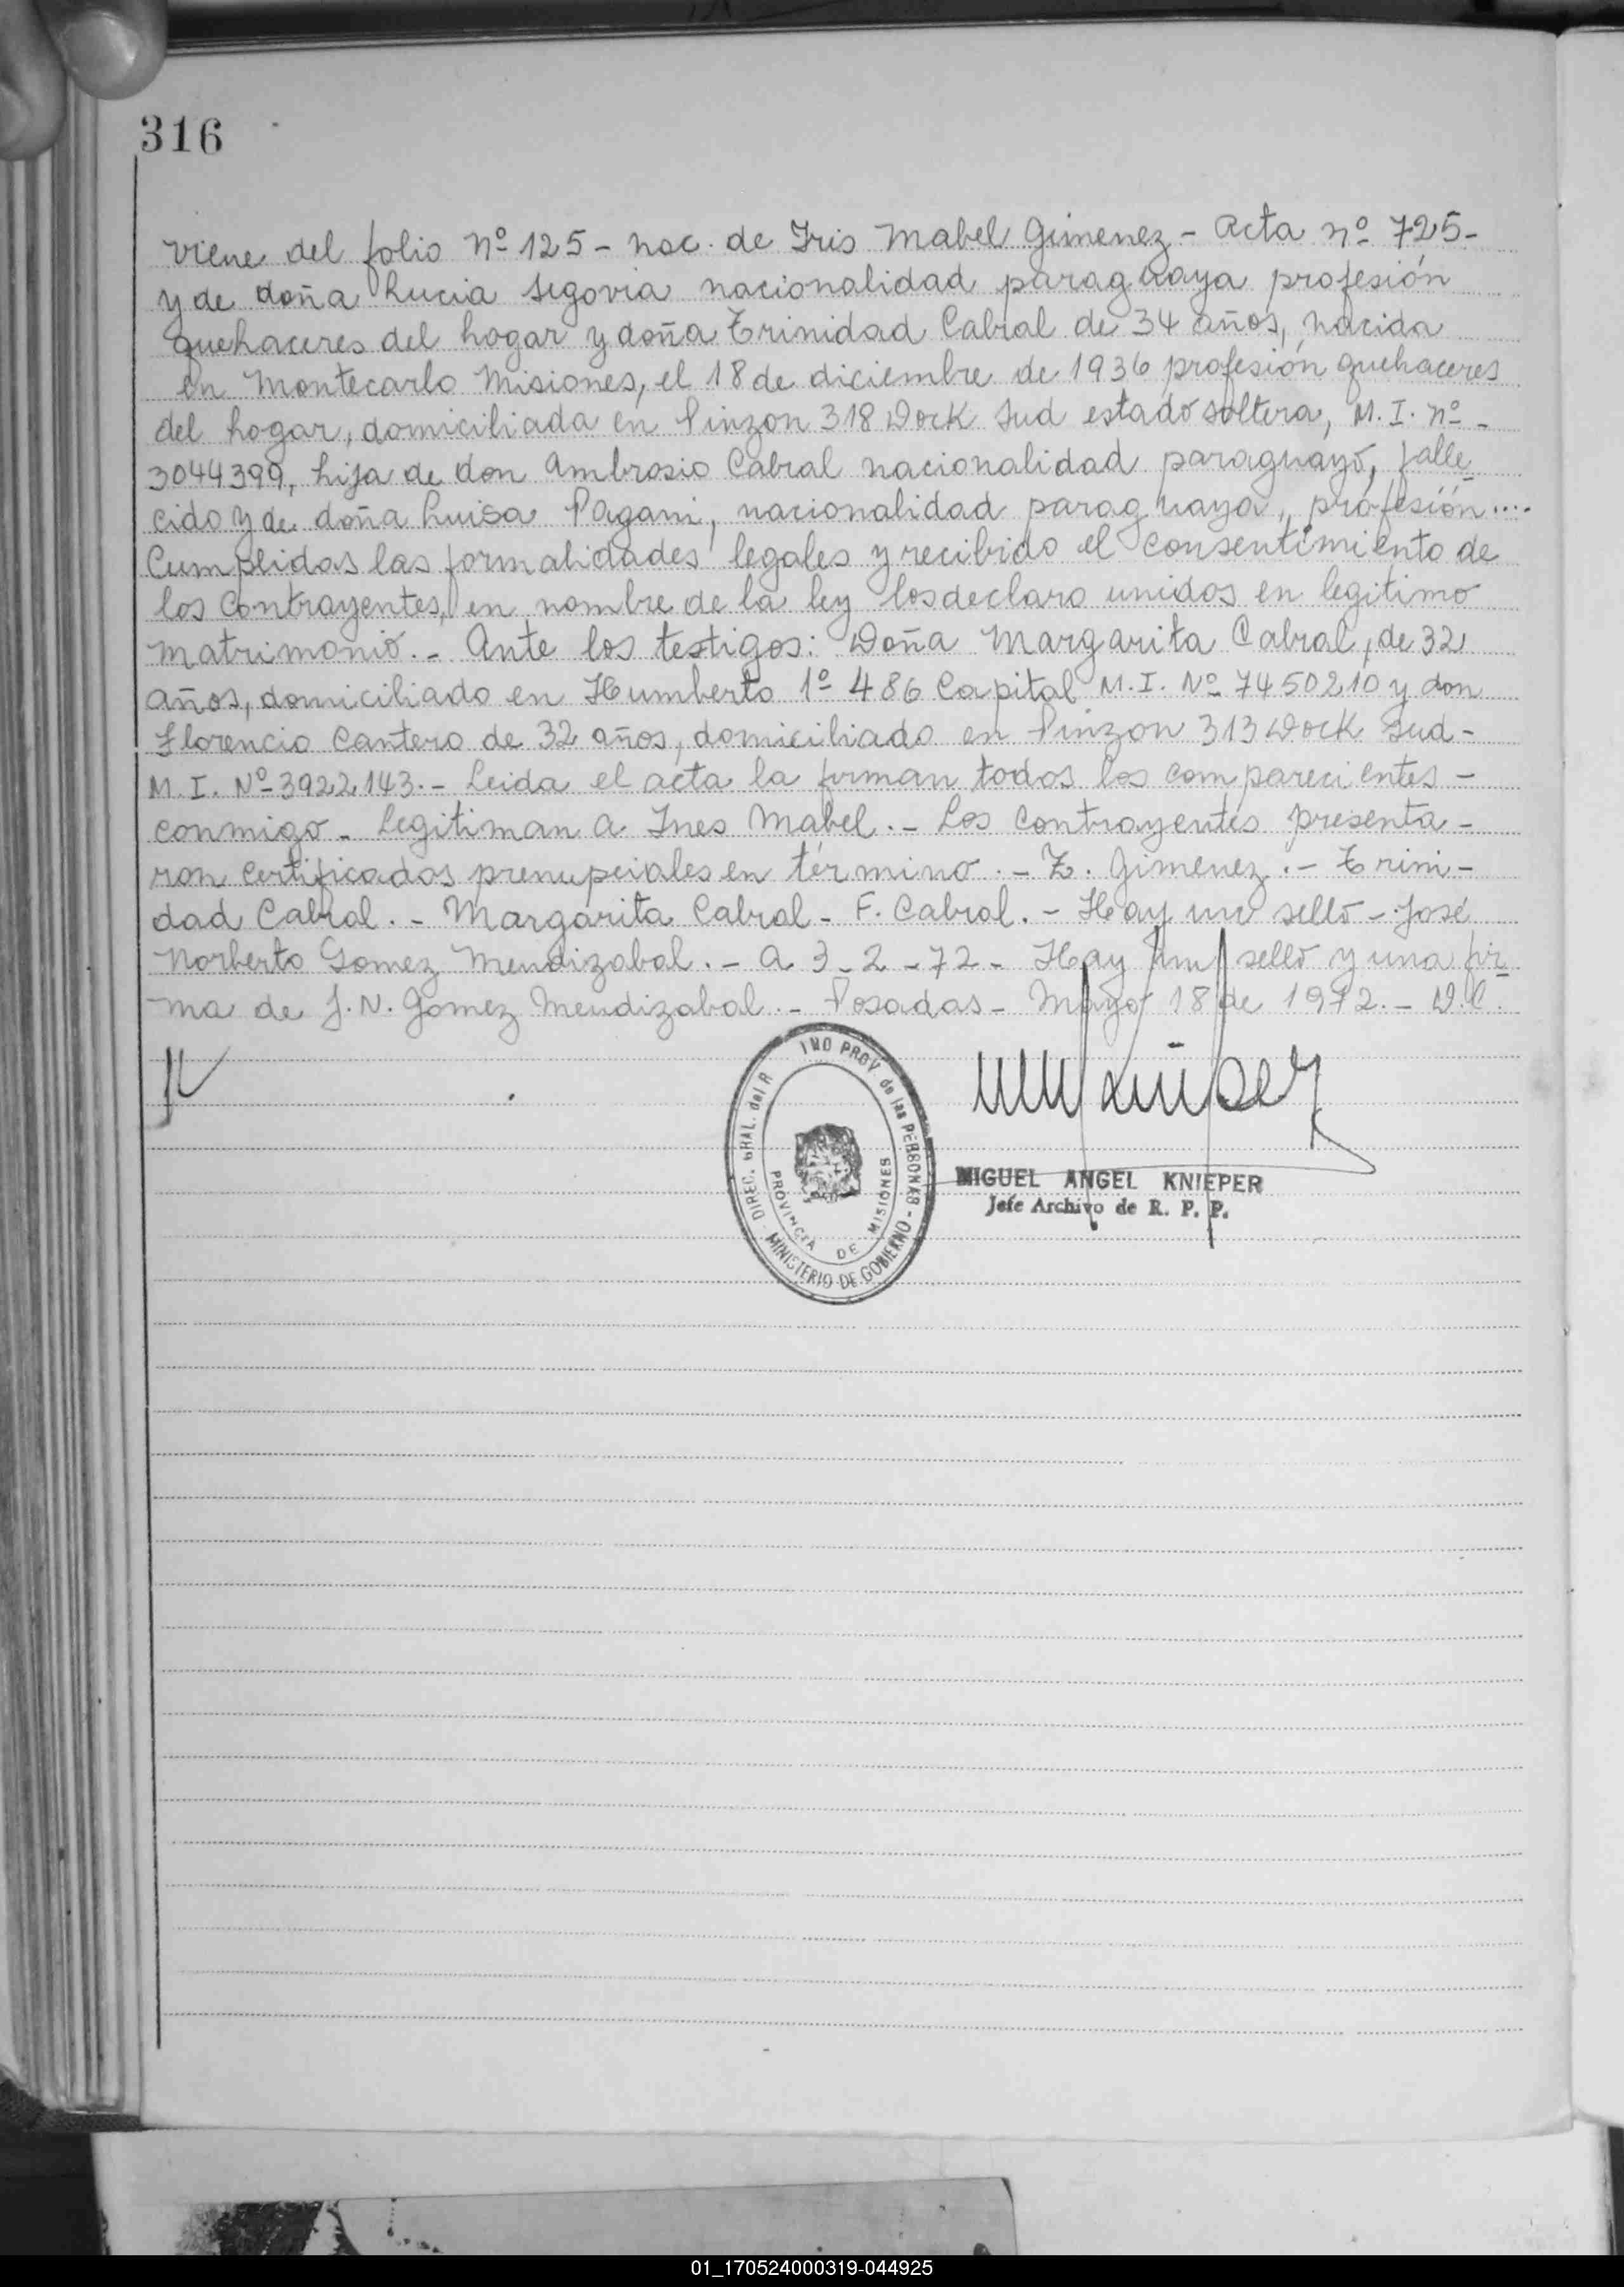 316
viene del folio Nº 125 - nac. de Iris Mabel Gimenez - Acta nº 725-
y de doña Lucia Segovia nacionalidad paraguaya profesión
quehaceres del hogar y doña Trinidad Cabral de 34 años, nacida
en Montecarlo Misiones, el 18 de diciembre de 1936 profesión quehaceres
del hogar, domiciliada en Pinzon 318 Dock Sud estado soltera, M. I. nº -
3044399, hija de don Ambrosio Cabral nacionalidad paraguayo, falle-
cido y de doña Luisa Pagani, nacionalidad paraguaya, profesión....
Cumplidas las formalidades legales y recibido el consentimiento de
los Contrayentes, en nombre de la ley los declaro unidos en legitimo
matrimonio. - Ante los testigos: Doña Margarita Cabral, de 32
años, domiciliado en Humberto 1º 486 Capital M. I. Nº 7450210 y don
Florencio Cantero de 32 años, domiciliado en Pinzon 313 Dock Sud -
M. I. Nº 3922143. - Leida el acta la firman todos los comparecientes -
conmigo - Legitiman a Ines Mabel. - Los Contrayentes presenta -
ron certificados prenupciales en término. - Z. Gimenez. - Trini -
dad Cabral. - Margarita Cabral - F. Cabral. - Hay un sello - José
Norberto Gomez Mendizabal. - A 3 - 2 - 72 - Hay un sello y una fir-
ma de J. N. Gomez Mendizabal. - Posadas - Mayo 18 de 1972. - D.C.
DIREC. GRAL. del R INO PROV. de las PERSONAS - MINISTERIO DE GOBIERNO -
PROVINCIA DE MISIONES
MIGUEL ANGEL KNIEPER
Jefe Archivo de R. P. P.
01_170524000319-044925